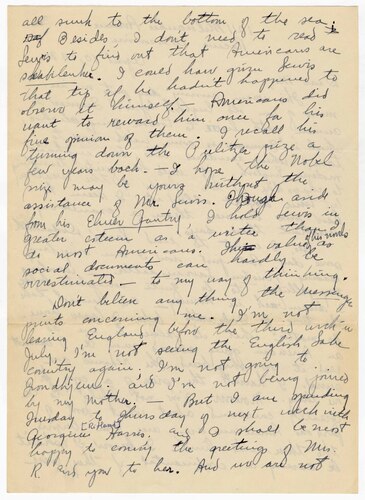 all sunk to the bottom of the sea.
Besides, I don't need to read
Lewis to find out that Americans are
I could have given Lewis
that tip if he hadn't happened to
observe it himself. — Americans did
want to reward him once for his
fine opinion of them. I recall his
turning down the Pulitzer prize a
few years back. — I hope the Nobel
prize may be yours without the
assistance of Mr. Lewis. aside
from his Elmer Gantry, I hold Lewis in
greater esteem as a writer than I
do most Americans. His novels value as
social documents can hardly be
overestimated — to my way of thinking.
Don't believe any thing the Messenger
prints concerning me. I'm not
leaving England before the third week in
July, I'm not seeing the English Lake
country again, I'm not going to
and I'm not being joined
by my mother. — But I am spending
Tuesday to Thursday of next week with
Georgina Harris. and I shall be most
happy to convey the greetings of Mrs.
R. and you to her. And we are not